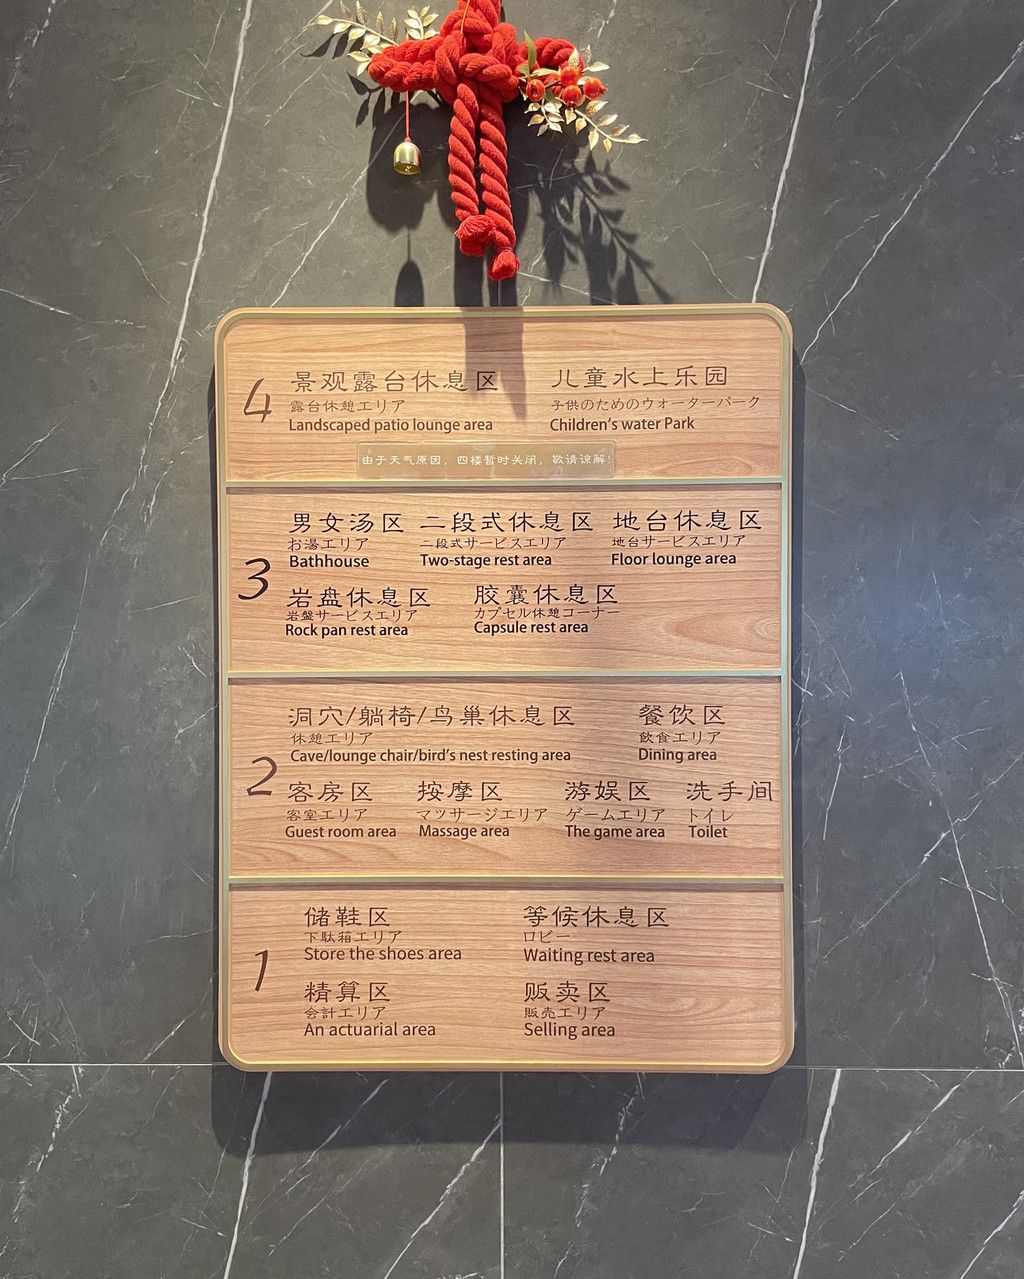 4
景观露台休息区
露台休憩エリア
Landscaped patio lounge area
儿童水上乐园
子供のためのウォーターパーク
Children's water Park
由于天气原因，四楼暂时关闭，敬请谅解！
3
男女汤区
お湯エリア
Bathhouse
二段式休息区
二段式サービスエリア
Two-stage rest area
地台休息区
地台サービスエリア
Floor lounge area
岩盘休息区
岩盤サービスエリア
Rock pan rest area
胶囊休息区
カプセル休憩コーナー
Capsule rest area
2
洞穴/躺椅/鸟巢休息区
休憩エリア
Cave/lounge chair/bird's nest resting area
餐饮区
飲食エリア
Dining area
客房区
客室エリア
Guest room area
按摩区
マツサージエリア
Massage area
游娱区
ゲームエリア
The game area
洗手间
トイレ
Toilet
1
储鞋区
下駄箱エリア
Store the shoes area
等候休息区
ロビー
Waiting rest area
精算区
会計エリア
An actuarial area
贩卖区
販売エリア
Selling area